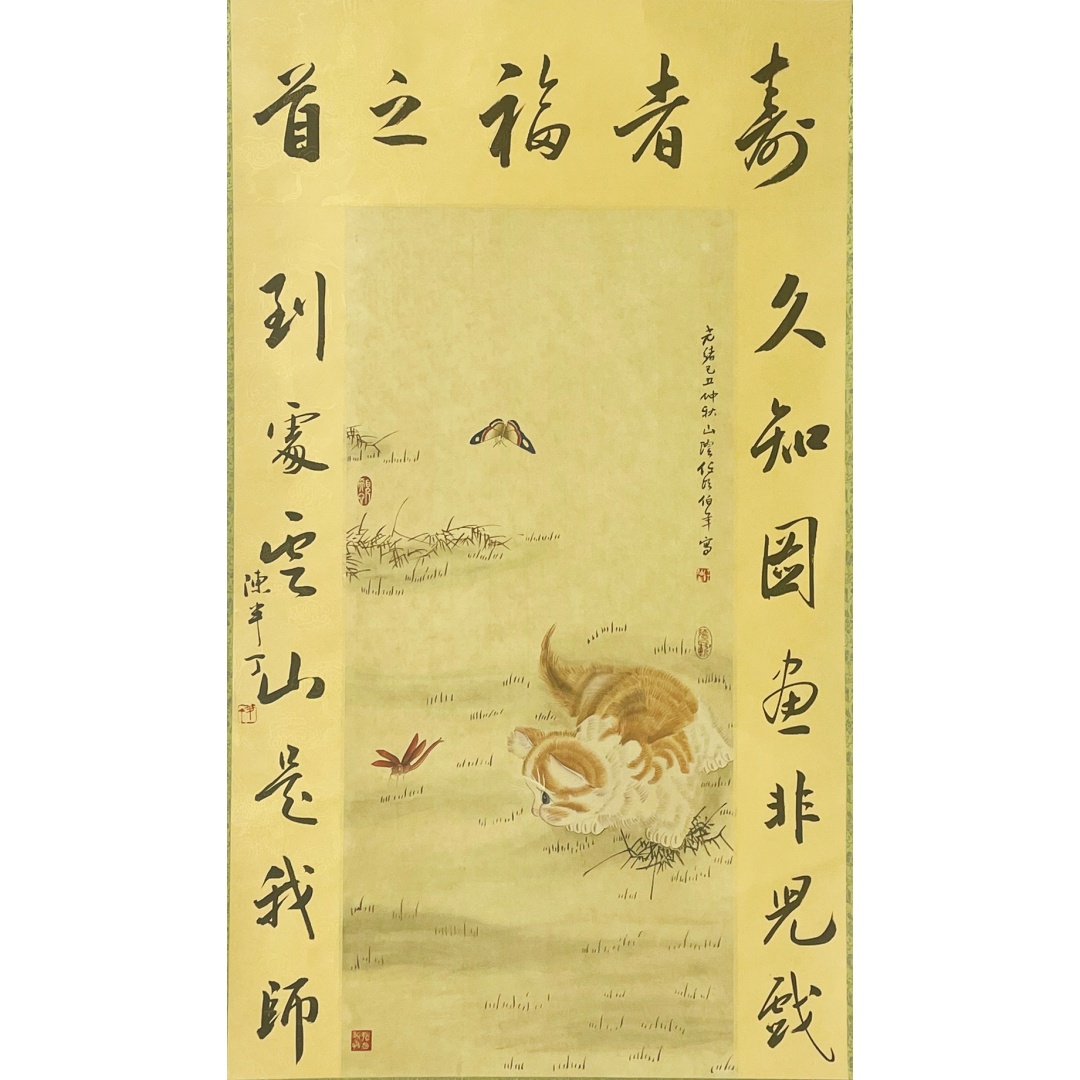 壽者福之首
久知圖畫非兒戲
到處雲山是我師
陳半丁
光緒己丑仲秋山陰任頤伯年寫